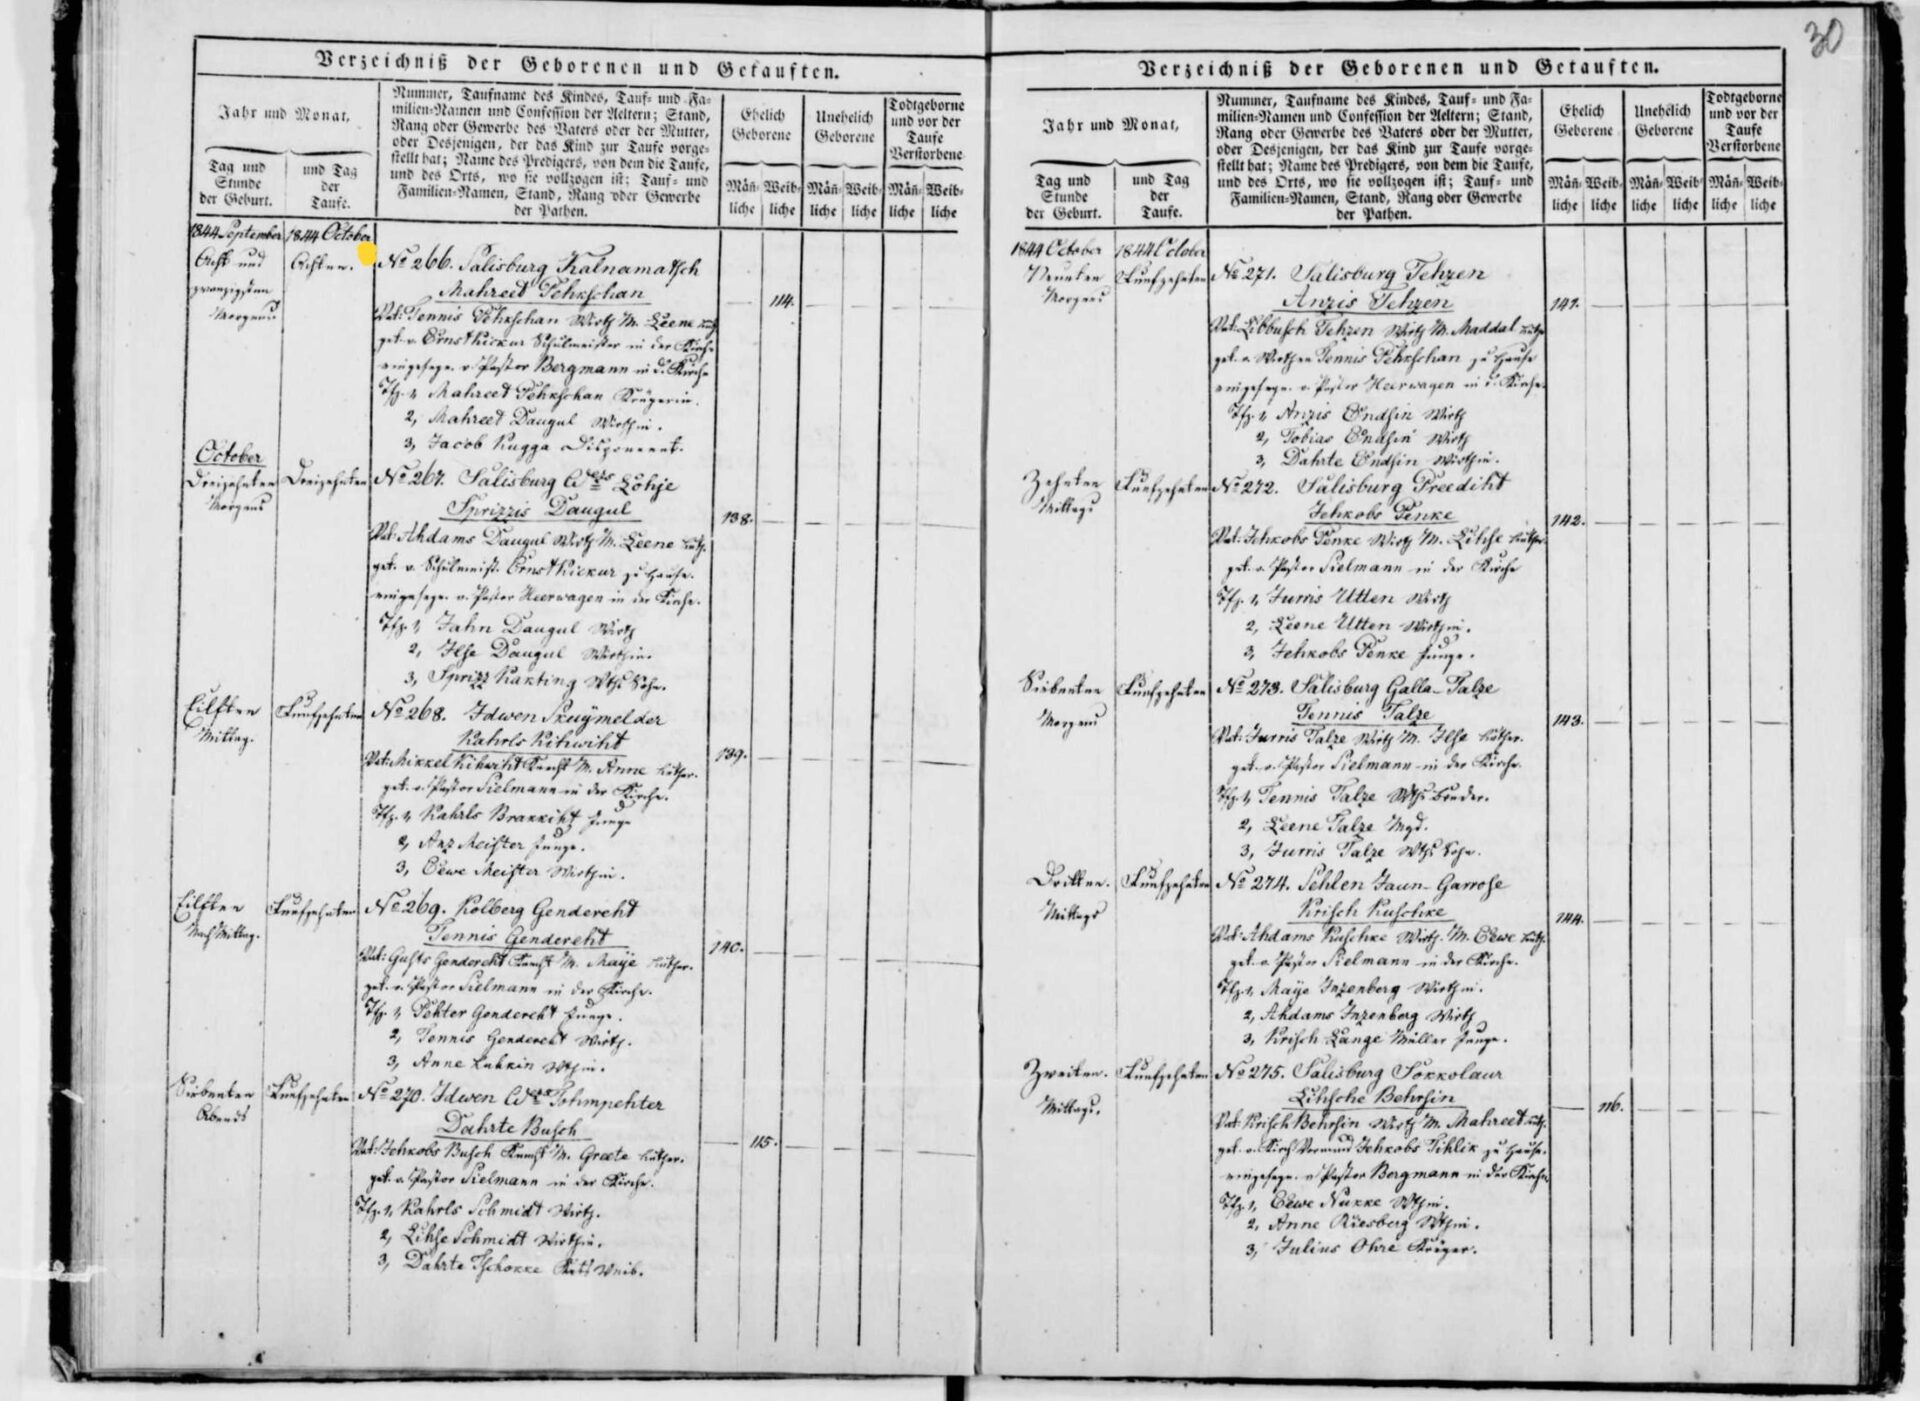 30
Verzeichniß der Geborenen und Getauften.
Jahr und Monat,
Tag und
Stunde
der Geburt.
und Tag
der
Taufe.
Nummer, Taufname des Kindes, Tauf- und Fa-
milien-Namen und Confession der Aeltern; Stand,
Rang oder Gewerbe des Vaters oder der Mutter,
oder Desjenigen, der das Kind zur Taufe vorge-
stellt hat; Name des Predigers, von dem die Taufe,
und des Orts, wo sie vollzogen ist; Tauf- und
Familien-Namen, Stand, Rang oder Gewerbe
der Pathen.
Ehelich
Geborene
Unehelich
Geborene
Todtgeborne
und vor der
Taufe
Verstorbene
Mäñ-
liche
Weib-
liche
Mäñ-
liche
Weib-
liche
Mäñ-
liche
Weib-
liche
1844 September 1844 October
Acht und
zwanzigsten
Morgens
Achten.
No 266. Salisburg Kalnamatsch
Mahreet Pehkschan
114.
Vat: Tennis Pehkschan Wirth M. Leene luth.
get. v. Ernst Kickur Schulmeister in der Kirche
eingeseg. v. Pastor Bergmann in d. Kirche
Tfz. 1, Mahreet Pehkschan Krügerin.
2, Mahreet Daugul Wirthin.
3, Jacob Kugga Disponent.
October
Dreizehnten
Morgens
Dreizehnten
No 267. Salisburg Lohje
Sprizzis Daugul
138.
Vat: Ahdams Daugul Wirth M. Leene luth.
get. v. Schulmeist. Ernst Kickur zu Hause.
eingeseg. v. Pastor Heerwagen in der Kirche.
Tfz. 1, Jahn Daugul Wirth
2, Ilse Daugul Wirthin.
3, Sprizz Kakting Wths Sohn.
Eilften
Mittag.
Funfzehnten
No 268. Idwen Skuymelder
Kahrls Kihwiht
139.
Vat: Mikkel Kihwiht Knecht M. Anne luther.
get. v. Pastor Sielmann in der Kirche.
Tfz. 1, Kahrls Brakkiht Junge
2, Anz Meister Junge.
3, Eewe Meister Wirthin.
Eilften
Nach Mittag.
Funfzehnten
No 269. Kolberg Gendereht
Tennis Genderеht
140.
Vat: Gusts Genderеht Knecht M. Maye luther.
get. v. Pastor Sielmann in der Kirche.
Tfz. 1, Pehter Genderеht Junge.
2, Tennis Genderеht Wirth.
3, Anne Luhkin Wthin.
Siebenten
Abends
Funfzehnten
No 270. Idwen Tohmpehter
Dahrte Busch
115.
Vat: Jehkobs Busch Knecht M. Greete luther.
get. v. Pastor Sielmann in der Kirche.
Tfz. 1, Kahrls Schmidt Wirth.
2, Lihse Schmidt Wirthin.
3, Dahrte Tschokke Weib.
Verzeichniß der Geborenen und Getauften.
Jahr und Monat,
Tag und
Stunde
der Geburt.
und Tag
der
Taufe.
Nummer, Taufname des Kindes, Tauf- und Fa-
milien-Namen und Confession der Aeltern; Stand,
Rang oder Gewerbe des Vaters oder der Mutter,
oder Desjenigen, der das Kind zur Taufe vorge-
stellt hat; Name des Predigers, von dem die Taufe,
und des Orts, wo sie vollzogen ist; Tauf- und
Familien-Namen, Stand, Rang oder Gewerbe
der Pathen.
Ehelich
Geborene
Unehelich
Geborene
Todtgeborne
und vor der
Taufe
Verstorbene
Mäñ-
liche
Weib-
liche
Mäñ-
liche
Weib-
liche
Mäñ-
liche
Weib-
liche
1844 October 1844 October
Neunten
Morgens
Funfzehnten
No 271. Salisburg Tehzen
Anzis Tehzen
141.
Vat: Libbusch Tehzen Wirth M. Maddal luth.
get. v. Wirthen Tennis Pehkschan zu Hause
eingeseg. v. Pastor Heerwagen in d. Kirche.
Tfz. 1, Anzis Ondsin Wirth
2, Tobias Ondsin Wirth
3, Dahrte Ondsin Wirthin.
Zehnten
Mittags
Funfzehnten
No 272. Salisburg Preediht
Jehkobs Penke
142.
Vat: Jehkobs Penke Wirth M. Lihse luther.
get. v. Pastor Sielmann in der Kirche
Tfz. 1, Jurris Utten Wirth
2, Leene Utten Wirthin.
3, Jehkobs Penke Junge.
Siebenten
Morgens
Funfzehnten
No 273. Salisburg Galla-Talze
Tennis Talze
143.
Vat: Jurris Talze Wirth M. Ilse luther.
get. v. Pastor Sielmann in der Kirche.
Tfz. 1, Tennis Talze Wths Bruder.
2, Leene Talze Mgd.
3, Jurris Talze Wths Sohn.
Dritten.
Mittags
Funfzehnten
No 274. Sehlen Jaun-Garrose
Krisch Kuschke
144.
Vat: Ahdams Kuschke Wirth. M. Eewe luth.
get. v. Pastor Sielmann in der Kirche.
Tfz. 1, Maye Inzenberg Wirthin.
2, Ahdams Inzenberg Wirth
3, Krisch Lange Müller Junge.
Zweiten.
Mittags.
Funfzehnten
No 275. Salisburg Sokkolaur
Lihsche Behrsin
116.
Vat: Krisch Behrsin Wirth M. Mahreet luth.
get. v. Kirch Vormund Jehkobs Sihlik zu Hause.
eingeseg. v. Pastor Bergmann in der Kirche
Tfz. 1, Eewe Nukke Wthin.
2, Anne Riesberg Wthin.
3, Julius Ohre Krüger.